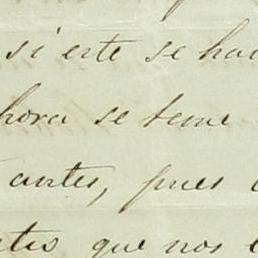 si este se ha
hora se teme
antes, pues
que nos